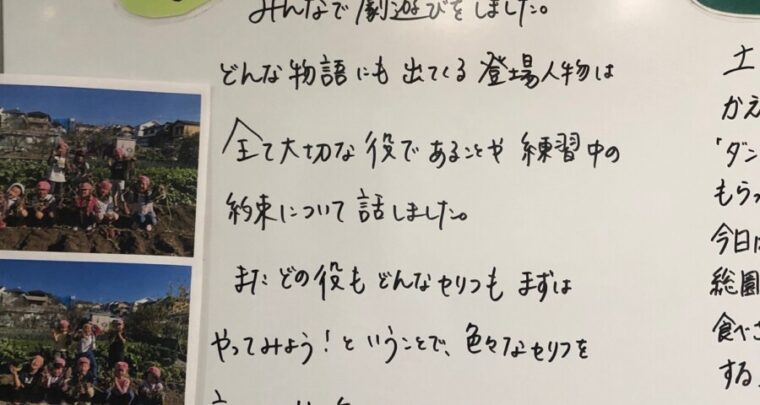 みんなで劇遊びをしました。
どんな物語にも出てくる登場人物は
全て大切な役であることや練習中の
約束について話しました。
またどの役もどんなセリフもまずは
やってみよう!ということで、色々なセリフを
土
かえ
「ダン
もらっ
今日は
総園
食べさ
する。